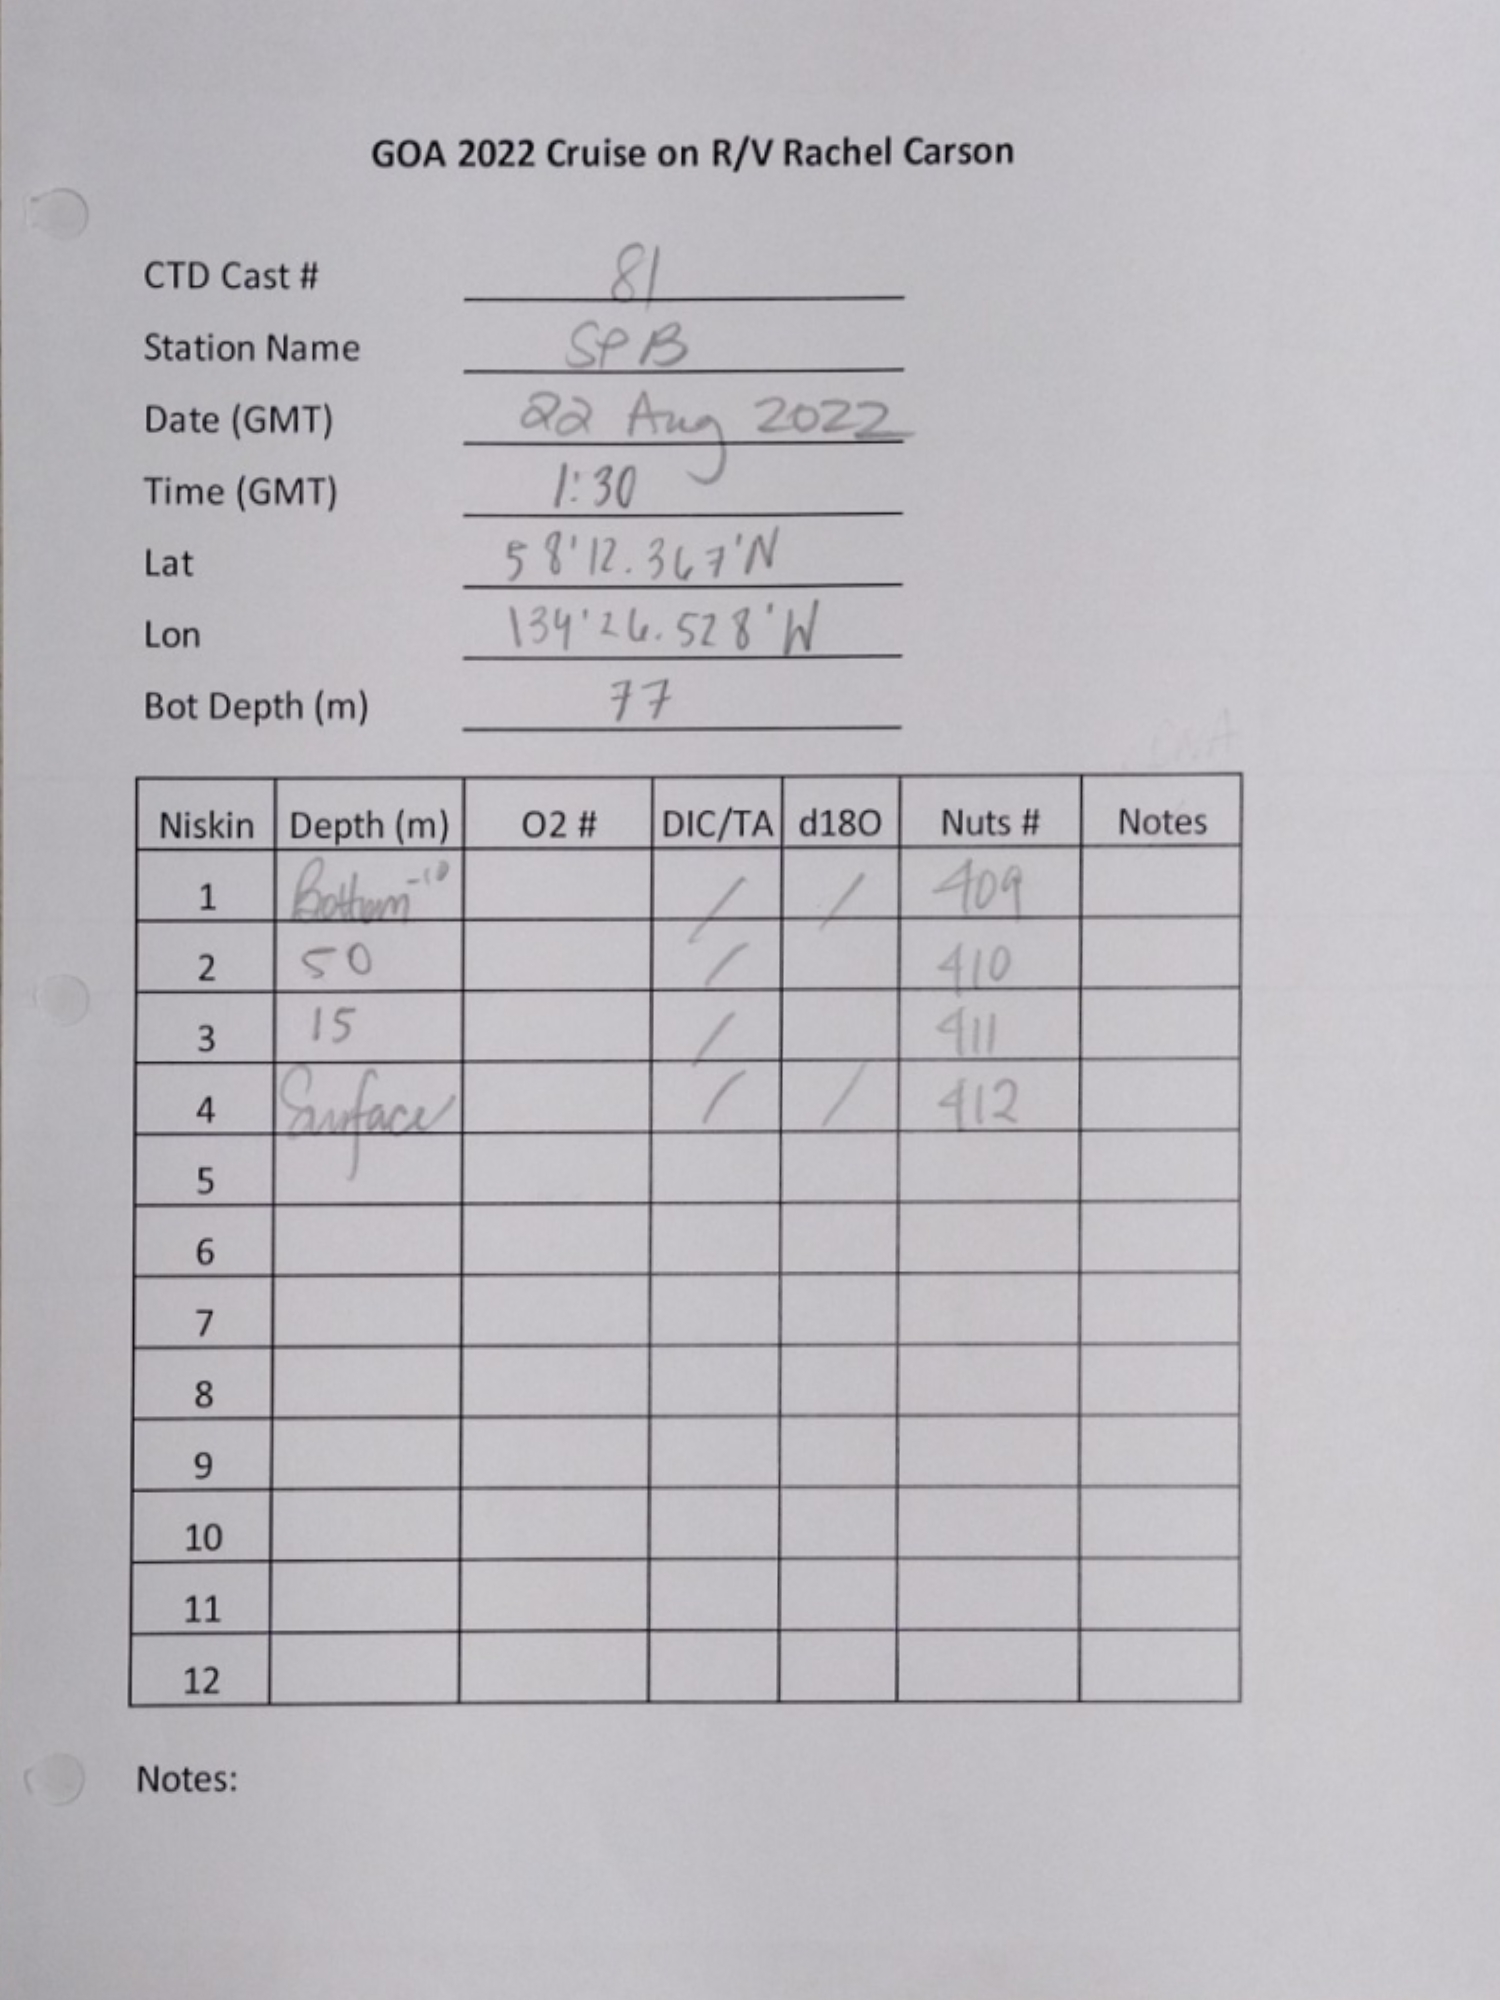 GOA 2022 Cruise on R/V Rachel Carson
CTD Cast # 81
Station Name SPB
Date (GMT) 22 Aug 2022
Time (GMT) 1:30
Lat 58'12.367'N
Lon 134'26.528'W
Bot Depth (m) 77
Niskin Depth (m) O2 # DIC/TA d18O Nuts # Notes
1 Bottom-10 / / 409
2 50 / 410
3 15 / 411
4 Surface / / 412
5
6
7
8
9
10
11
12
Notes: